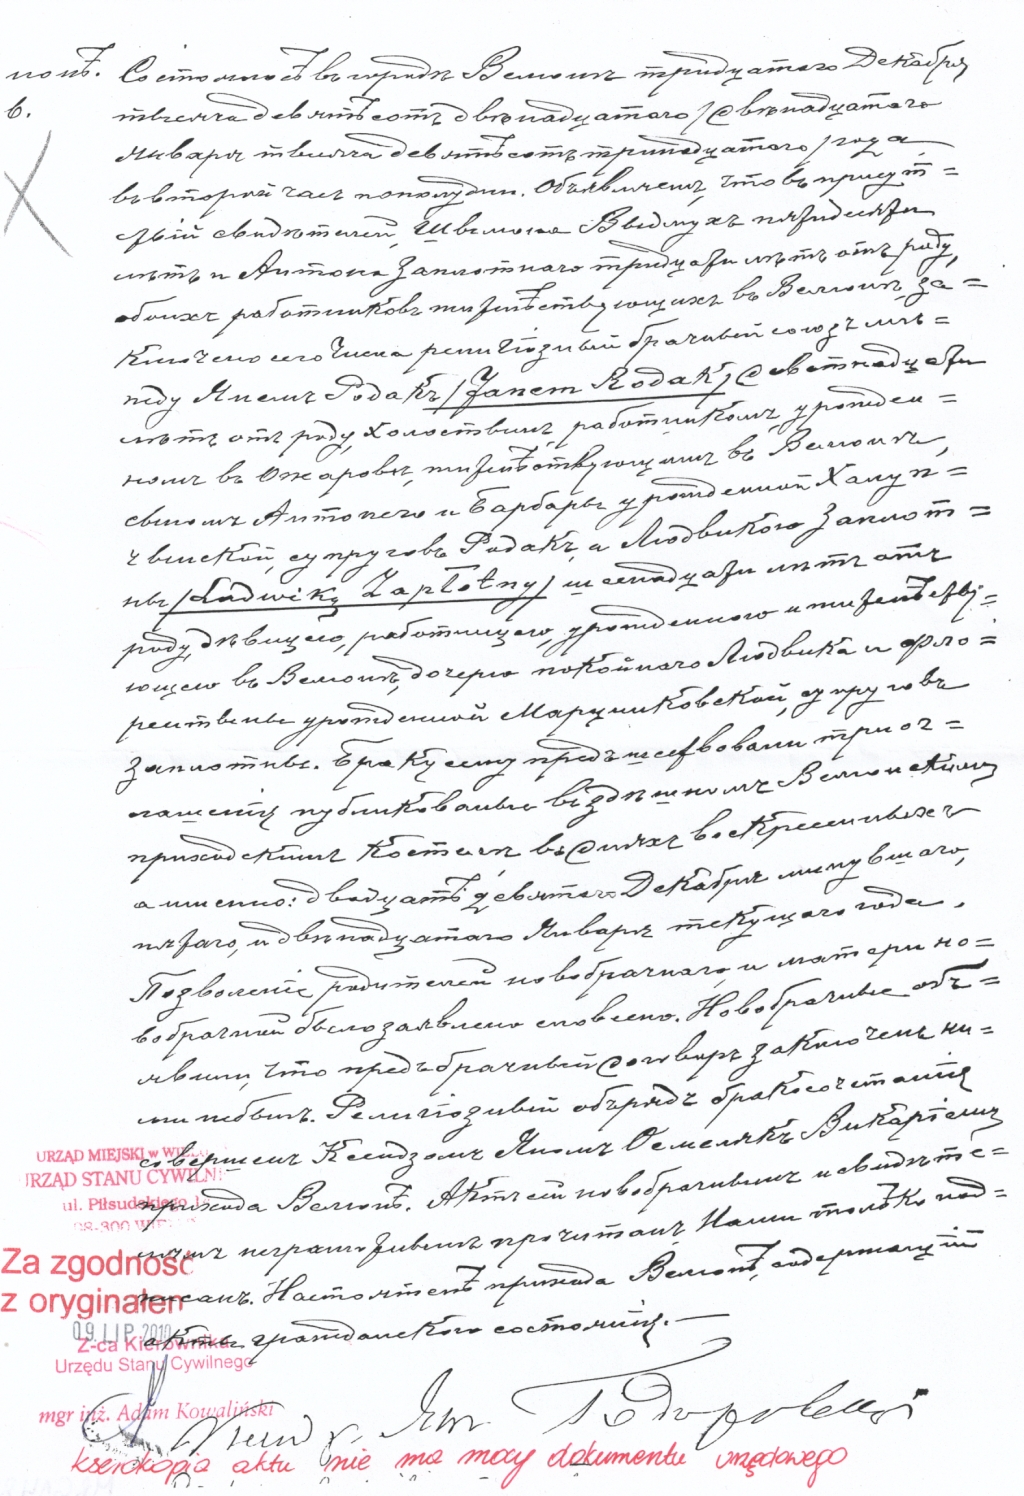 люнь. Состоялось въ городѣ Велюнѣ тридцатаго Декабря
6. тысяча девятьсотъ двѣнадцатаго /двѣнадцатаго
Января тысяча девятьсотъ тринадцатаго/ года
въ второй часъ пополудни. Объявляемъ, что въ присут=
ствіи свидѣтелей, Шымона Выдмухъ пятидесяти
лѣтъ и Антона Заплотнаго тридцати лѣтъ отъ роду,
обоихъ работниковъ жительствующихъ въ Велюнѣ, за=
ключено сего числа религіозный брачный союзъ ме=
жду Яномъ Родакъ /Janem Rodak/ девятнадцати
лѣтъ отъ роду, холостымъ, работникомъ, урожден=
номъ въ Ожаровѣ, жительствующимъ въ Велюнѣ,
сыномъ Антонего и Барбары урожденной
супруговъ Родакъ, и Людвикою Заплот=
ны /Ludwiką Zapłotny/ шестнадцати лѣтъ отъ
роду, дѣвицею, работницею, урожденною и жительству=
ющею въ Велюнѣ, дочерью покойнаго Людвика и Фло=
рентыны урожденной Марцинковской, супруговъ
Заплотны. Браку сему предшествовали три ог=
лашенія публикованые въ здѣшномъ Велюнскимъ
приходскимъ костелѣ, въ дняхъ воскресныхъ
а именно: двадцать девятаго Декабря минувшаго,
пятаго, и двѣнадцатаго Января текущаго года.
Позволеніе родителей новобрачнаго, и матери но=
вобрачной было заявлено словесно. Новобрачные объ=
явили, что предъбрачный договоръ заключенъ ни=
ми небылъ. Религіозный обърядъ бракосочетанія
совершенъ Ксендзомъ Яномъ Осмелякъ Викаріемъ
прихода Велюнь. Актъ сей новобрачнымъ и свидѣте=
лямъ неграмотнымъ прочитанъ Нами только под=
писанъ. Настоятель прихода Велюнь, содержащій
акты гражданского состоянія.—
URZĄD MIEJSKI w
URZĄD STANU CYWILNEGO
ul. Piłsudskiego
98-300
Za zgodność
z oryginałem
09 LIP. 2010
Z-ca Kierownika
Urzędu Stanu Cywilnego
mgr inż. Adam Kowaliński
kserokopia aktu nie ma mocy dokumentu urzędowego